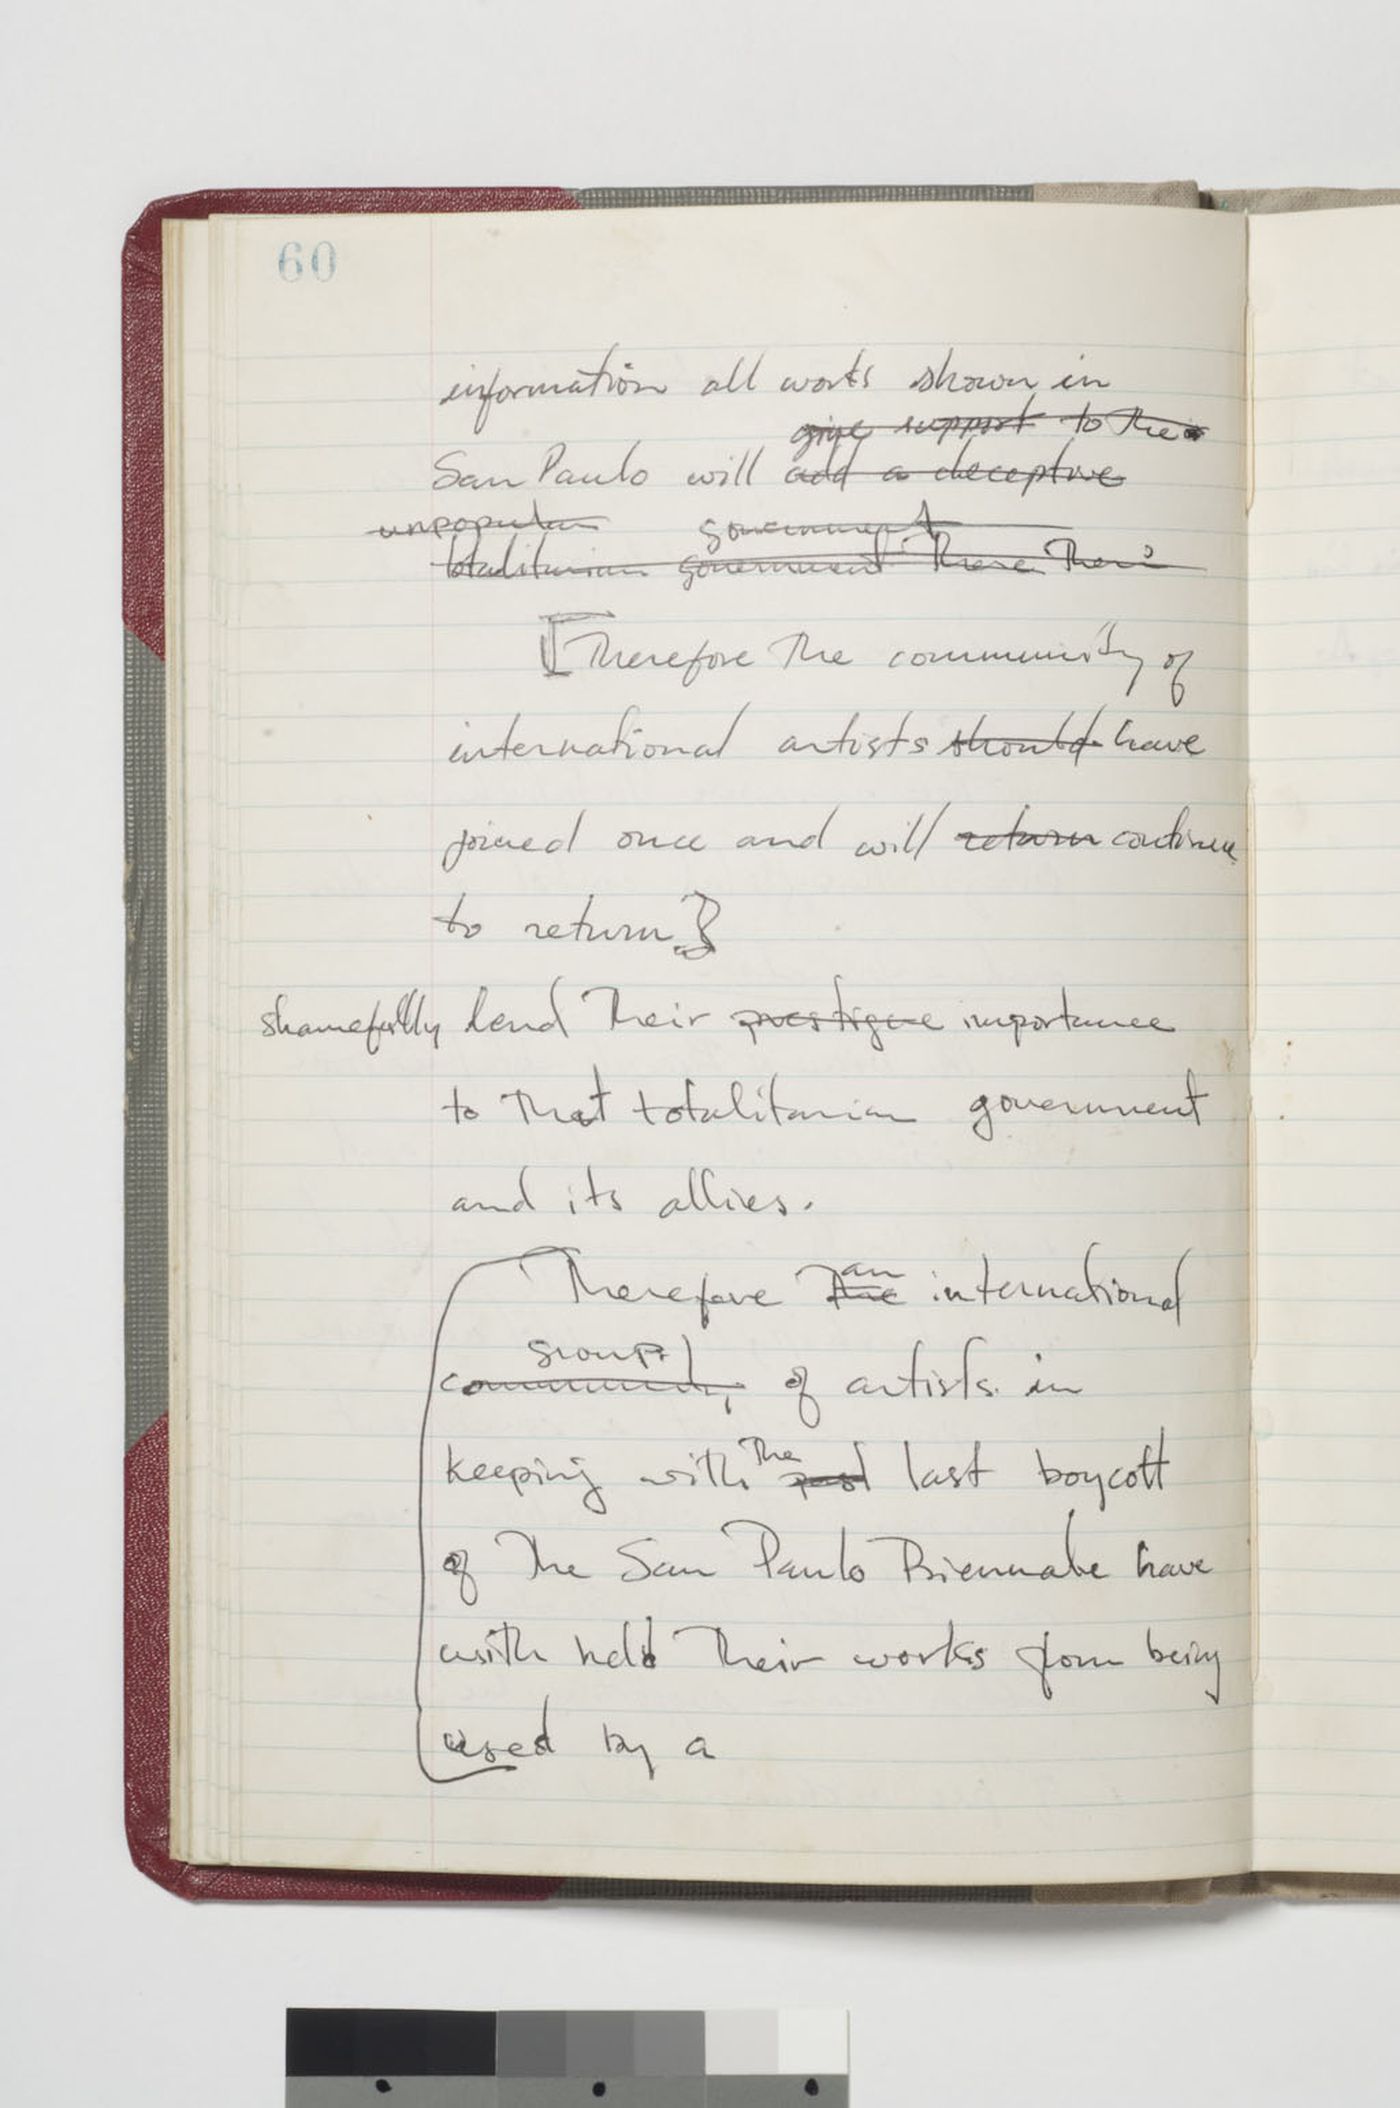 60
information all works shown in
give support to the
San Paulo will add a deceptive
unpopular government
totalitarian government there their
[Therefore the community of
international artists should have
joined once and will return continue
to return.]
shamefully lend their prestigue importance
to that totalitarian government
and its allies.
Therefore the an international
group
community of artists in
keeping with the past last boycott
of the San Paulo Biennale have
with held their works from being
used by a